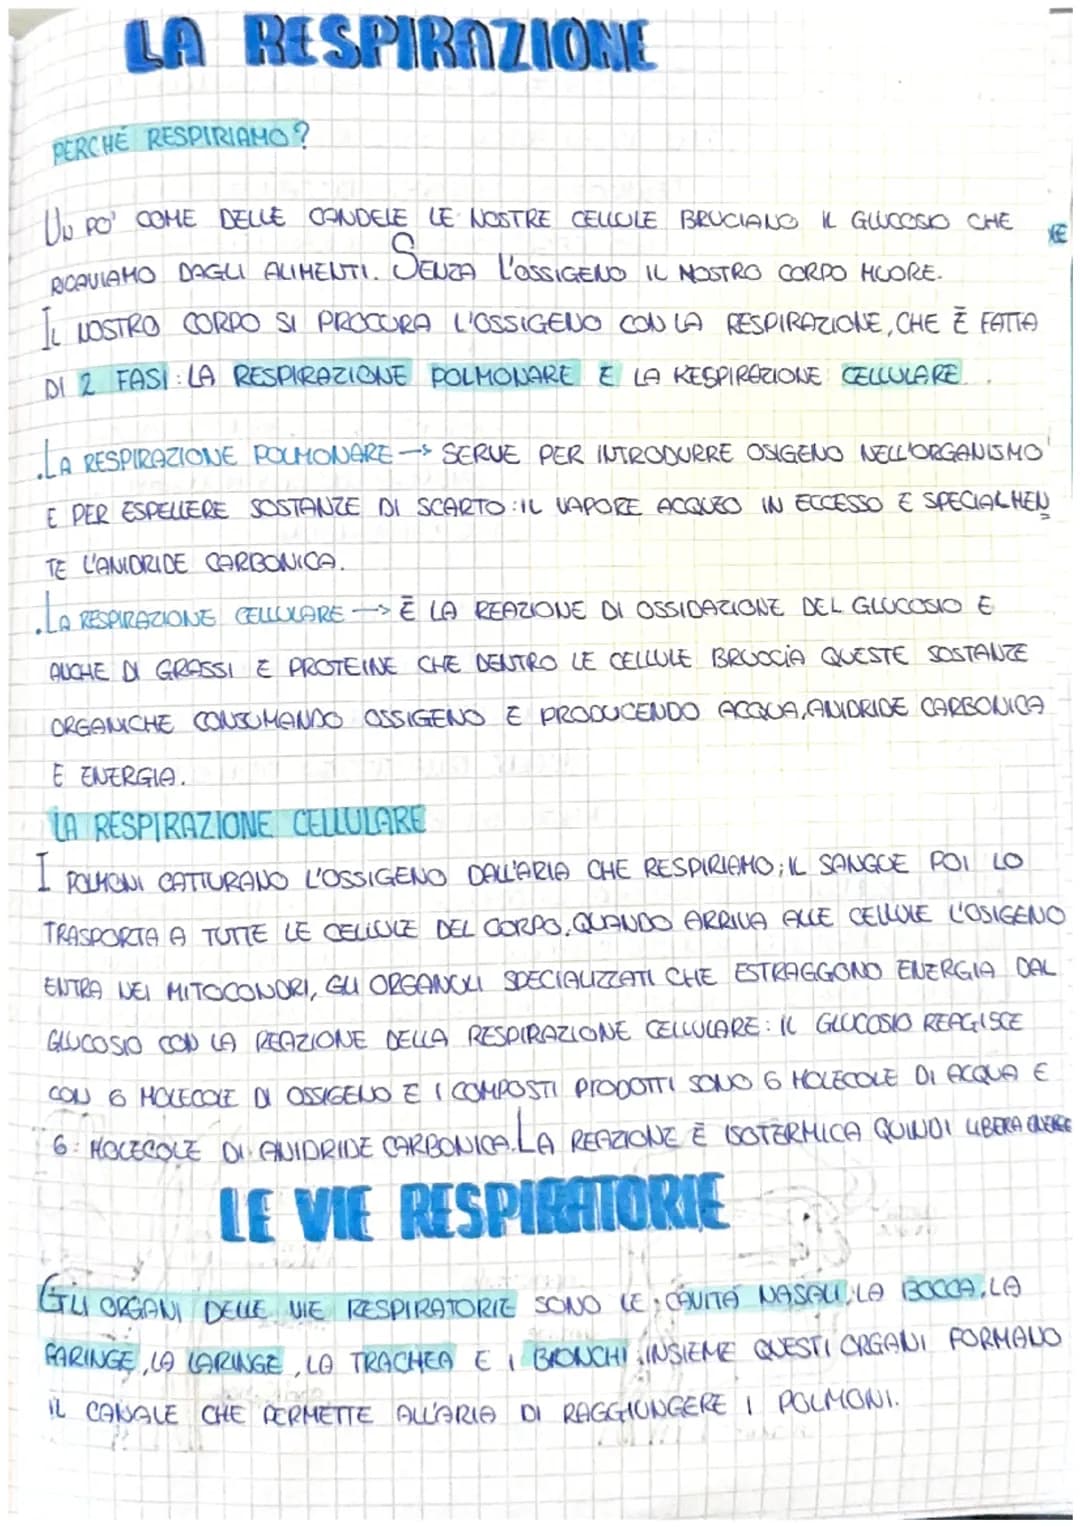 LA RESPIRAZIONE
PERCHÉ RESPIRIAMO?
UN PO' COME DELLE CANDELE LE NOSTRE CELLULE BRUCIANO IL GLUCOSIO CHE
RICAVIAMO DAGLI ALIMENTI. SENZA L'OSSIGENO IL NOSTRO CORPO MUORE.
IL NOSTRO CORPO SI PROCURA L'OSSIGENO CON LA RESPIRAZIONE, CHE È FATTA
DI 2 FASI: LA RESPIRAZIONE POLMONARE E LA RESPIRAZIONE CELLULARE.
.LA RESPIRAZIONE POLMONARE → SERVE PER INTRODURRE OSIGENO NELL'ORGANISMO
E PER ESPELLERE SOSTANZE DI SCARTO: IL VAPORE ACQUEO IN ECCESSO E SPECIALMEN
TE L'ANIDRIDE CARBONICA.
.LA RESPIRAZIONE CELLULARE → È LA REAZIONE DI OSSIDAZIONE DEL GLUCOSIO E
ANCHE DI GRASSI E PROTEINE CHE DENTRO LE CELLULE BRUCCIA QUESTE SOSTANZE
ORGANICHE CONSUMANDO OSSIGENO E PRODUCENDO ACQUA, ANIDRIDE CARBONICA
E ENERGIA.
LA RESPIRAZIONE CELLULARE
I POLMONI CATTURANO L'OSSIGENO DALL'ARIA CHE RESPIRIAMO; IL SANGUE POI LO
TRASPORTA A TUTTE LE CELLULE DEL CORPO. QUANDO ARRIVA ALLE CELLULE L'OSIGENO
ENTRA NEI MITOCONDRI, GLI ORGANULI SPECIALIZZATI CHE ESTRAGGONO ENERGIA DAL
GLUCOSIO CON LA REAZIONE DELLA RESPIRAZIONE CELLULARE: IL GLUCOSIO REAGISCE
CON 6 MOLECOLE DI OSSIGENO E I COMPOSTI PRODOTTI SONO 6 MOLECOLE DI ACQUA E
6 MOLECOLE DI ANIDRIDE CARBONICA. LA REAZIONE È ISOTERMICA QUINDI LIBERA
LE VIE RESPIRATORIE
GLI ORGANI DELLE VIE RESPIRATORIE SONO LE CAVITÀ NASALI, LA BOCCA, LA
FARINGE, LA LARINGE, LA TRACHEA E I BRONCHI. INSIEME QUESTI ORGANI FORMANO
IL CANALE CHE PERMETTE ALL'ARIA DI RAGGIUNGERE I POLMONI.